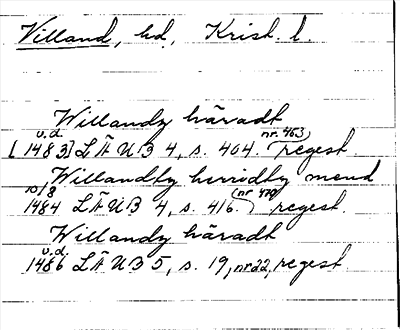 Villand, hd, Krist. l.
Willandz häradt
[u.d. 1483] LÄUB 4, s. 464. (nr. 463) regest
Willandtz herridtz mend
10/8 1484 LÄUB 4, s. 416. (nr 470) regest.
Willandz häradt
u.d. 1486 LÄUB 5, s. 19, nr 22, regest